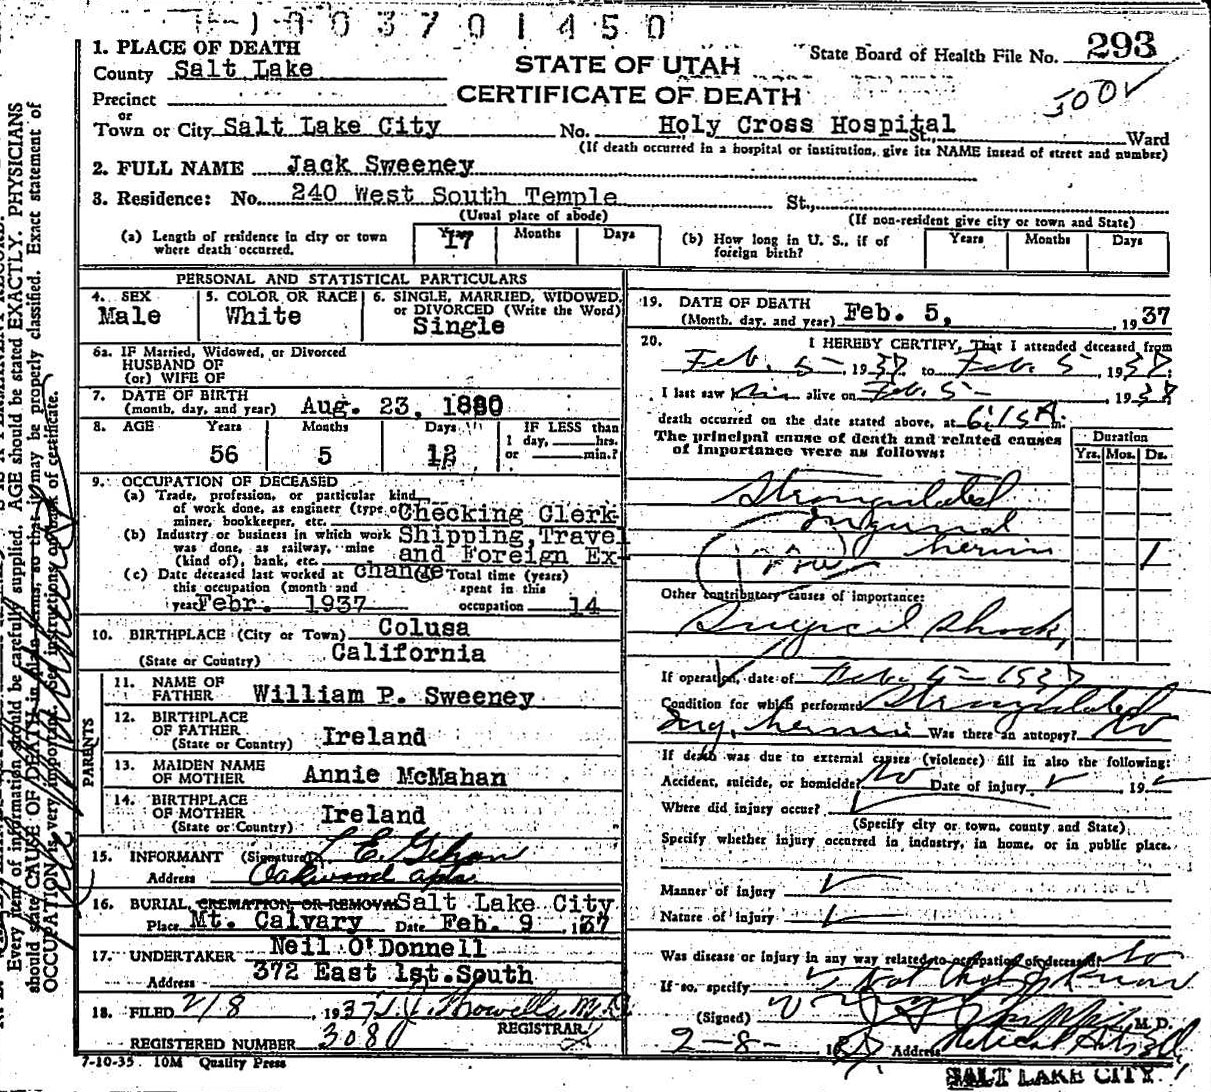 1003701450
1. PLACE OF DEATH
County Salt Lake
STATE OF UTAH
State Board of Health File No. 293
Precinct
CERTIFICATE OF DEATH
or
Town or City Salt Lake City No. Holy Cross Hospital St., Ward
(If death occurred in a hospital or institution, give its NAME instead of street and number)
2. FULL NAME Jack Sweeney
3. Residence: No. 240 West South Temple St.,
(Usual place of abode) (If non-resident give city or town and State)
(a) Length of residence in city or town where death occurred. Years 17 Months Days
(b) How long in U. S., if of foreign birth? Years Months Days
PERSONAL AND STATISTICAL PARTICULARS
4. SEX Male
5. COLOR OR RACE White
6. SINGLE, MARRIED, WIDOWED, or DIVORCED (Write the Word) Single
6a. IF Married, Widowed, or Divorced
HUSBAND OF
(or) WIFE OF
7. DATE OF BIRTH
(month, day, and year) Aug. 23, 1880
8. AGE Years Months Days IF LESS than
1 day, hrs.
or min.?
56 5 12
9. OCCUPATION OF DECEASED
(a) Trade, profession, or particular kind
of work done, as engineer (type of
miner, bookkeeper, etc. Checking Clerk
(b) Industry or business in which work Shipping, Travel
was done, as railway, mine
(kind of), bank, etc. and Foreign Ex-
(c) Date deceased last worked at change Total time (years)
this occupation (month and spent in this
year Febr. 1937 occupation 14
10. BIRTHPLACE (City or Town) Colusa
(State or Country) California
PARENTS
11. NAME OF
FATHER William P. Sweeney
12. BIRTHPLACE
OF FATHER
(State or Country) Ireland
13. MAIDEN NAME
OF MOTHER Annie McMahan
14. BIRTHPLACE
OF MOTHER
(State or Country) Ireland
15. INFORMANT (Signature)
Address Oakwood apts
16. BURIAL, CREMATION OR REMOVAL Salt Lake City
Place Mt. Calvary Date Feb. 9, 1937
17. UNDERTAKER Neil O'Donnell
Address 372 East 1st. South
18. FILED 2/8, 1937 Howells M.D.
REGISTRAR
REGISTERED NUMBER 3080
7-10-35 10M Quality Press
19. DATE OF DEATH
(Month, day, and year) Feb. 5, , 1937
20. I HEREBY CERTIFY, That I attended deceased from
Feb. 5- 1937 to Feb. 5, 1937
I last saw him alive on Feb. 5- , 1937
death occurred on the date stated above, at 6:15 A. m.
The principal cause of death and related causes
of importance were as follows:
Duration
Yrs. Mos. Ds.
Strangulated
Inguinal
hernia 1
Other contributory causes of importance:
Surgical Shock,
If operation, date of Feb. 5- 1937
Condition for which performed Strangulated
Ing. hernia Was there an autopsy? No
If death was due to external causes (violence) fill in also the following:
Accident, suicide, or homicide? No Date of injury , 19
Where did injury occur?
(Specify city or town, county and State)
Specify whether injury occurred in industry, in home, or in public place.
Manner of injury
Nature of injury
Was disease or injury in any way related to occupation of deceased? No
If so, specify Not that I know
(Signed) M. D.
2-8- 1937 Address Medical Arts Bldg
SALT LAKE CITY
Every item of information should be carefully supplied. AGE should be stated EXACTLY. PHYSICIANS
should state CAUSE OF DEATH in plain terms, so that it may be properly classified. Exact statement of
OCCUPATION is very important. See instructions on back of certificate.